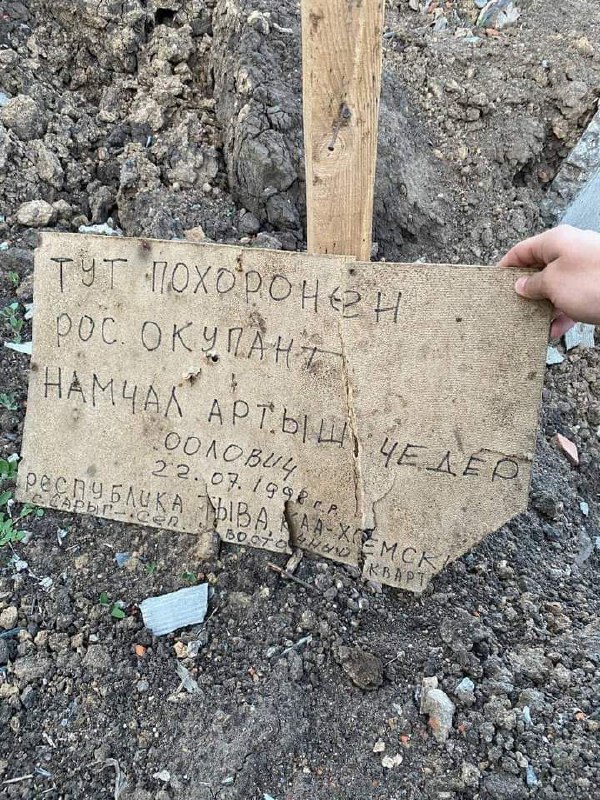 ТУТ ПОХОРОНЕН
РОС. ОКУПАНТ
НАМЧАЛ АРТЫШ ЧЕДЕР
ООЛОВИЧ
22.07.1998 г.р.
РЕСПУБЛИКА ТЫВА КАА-ХЕМСКИ
С. САРЫГ-СЕП.
КВАРТ